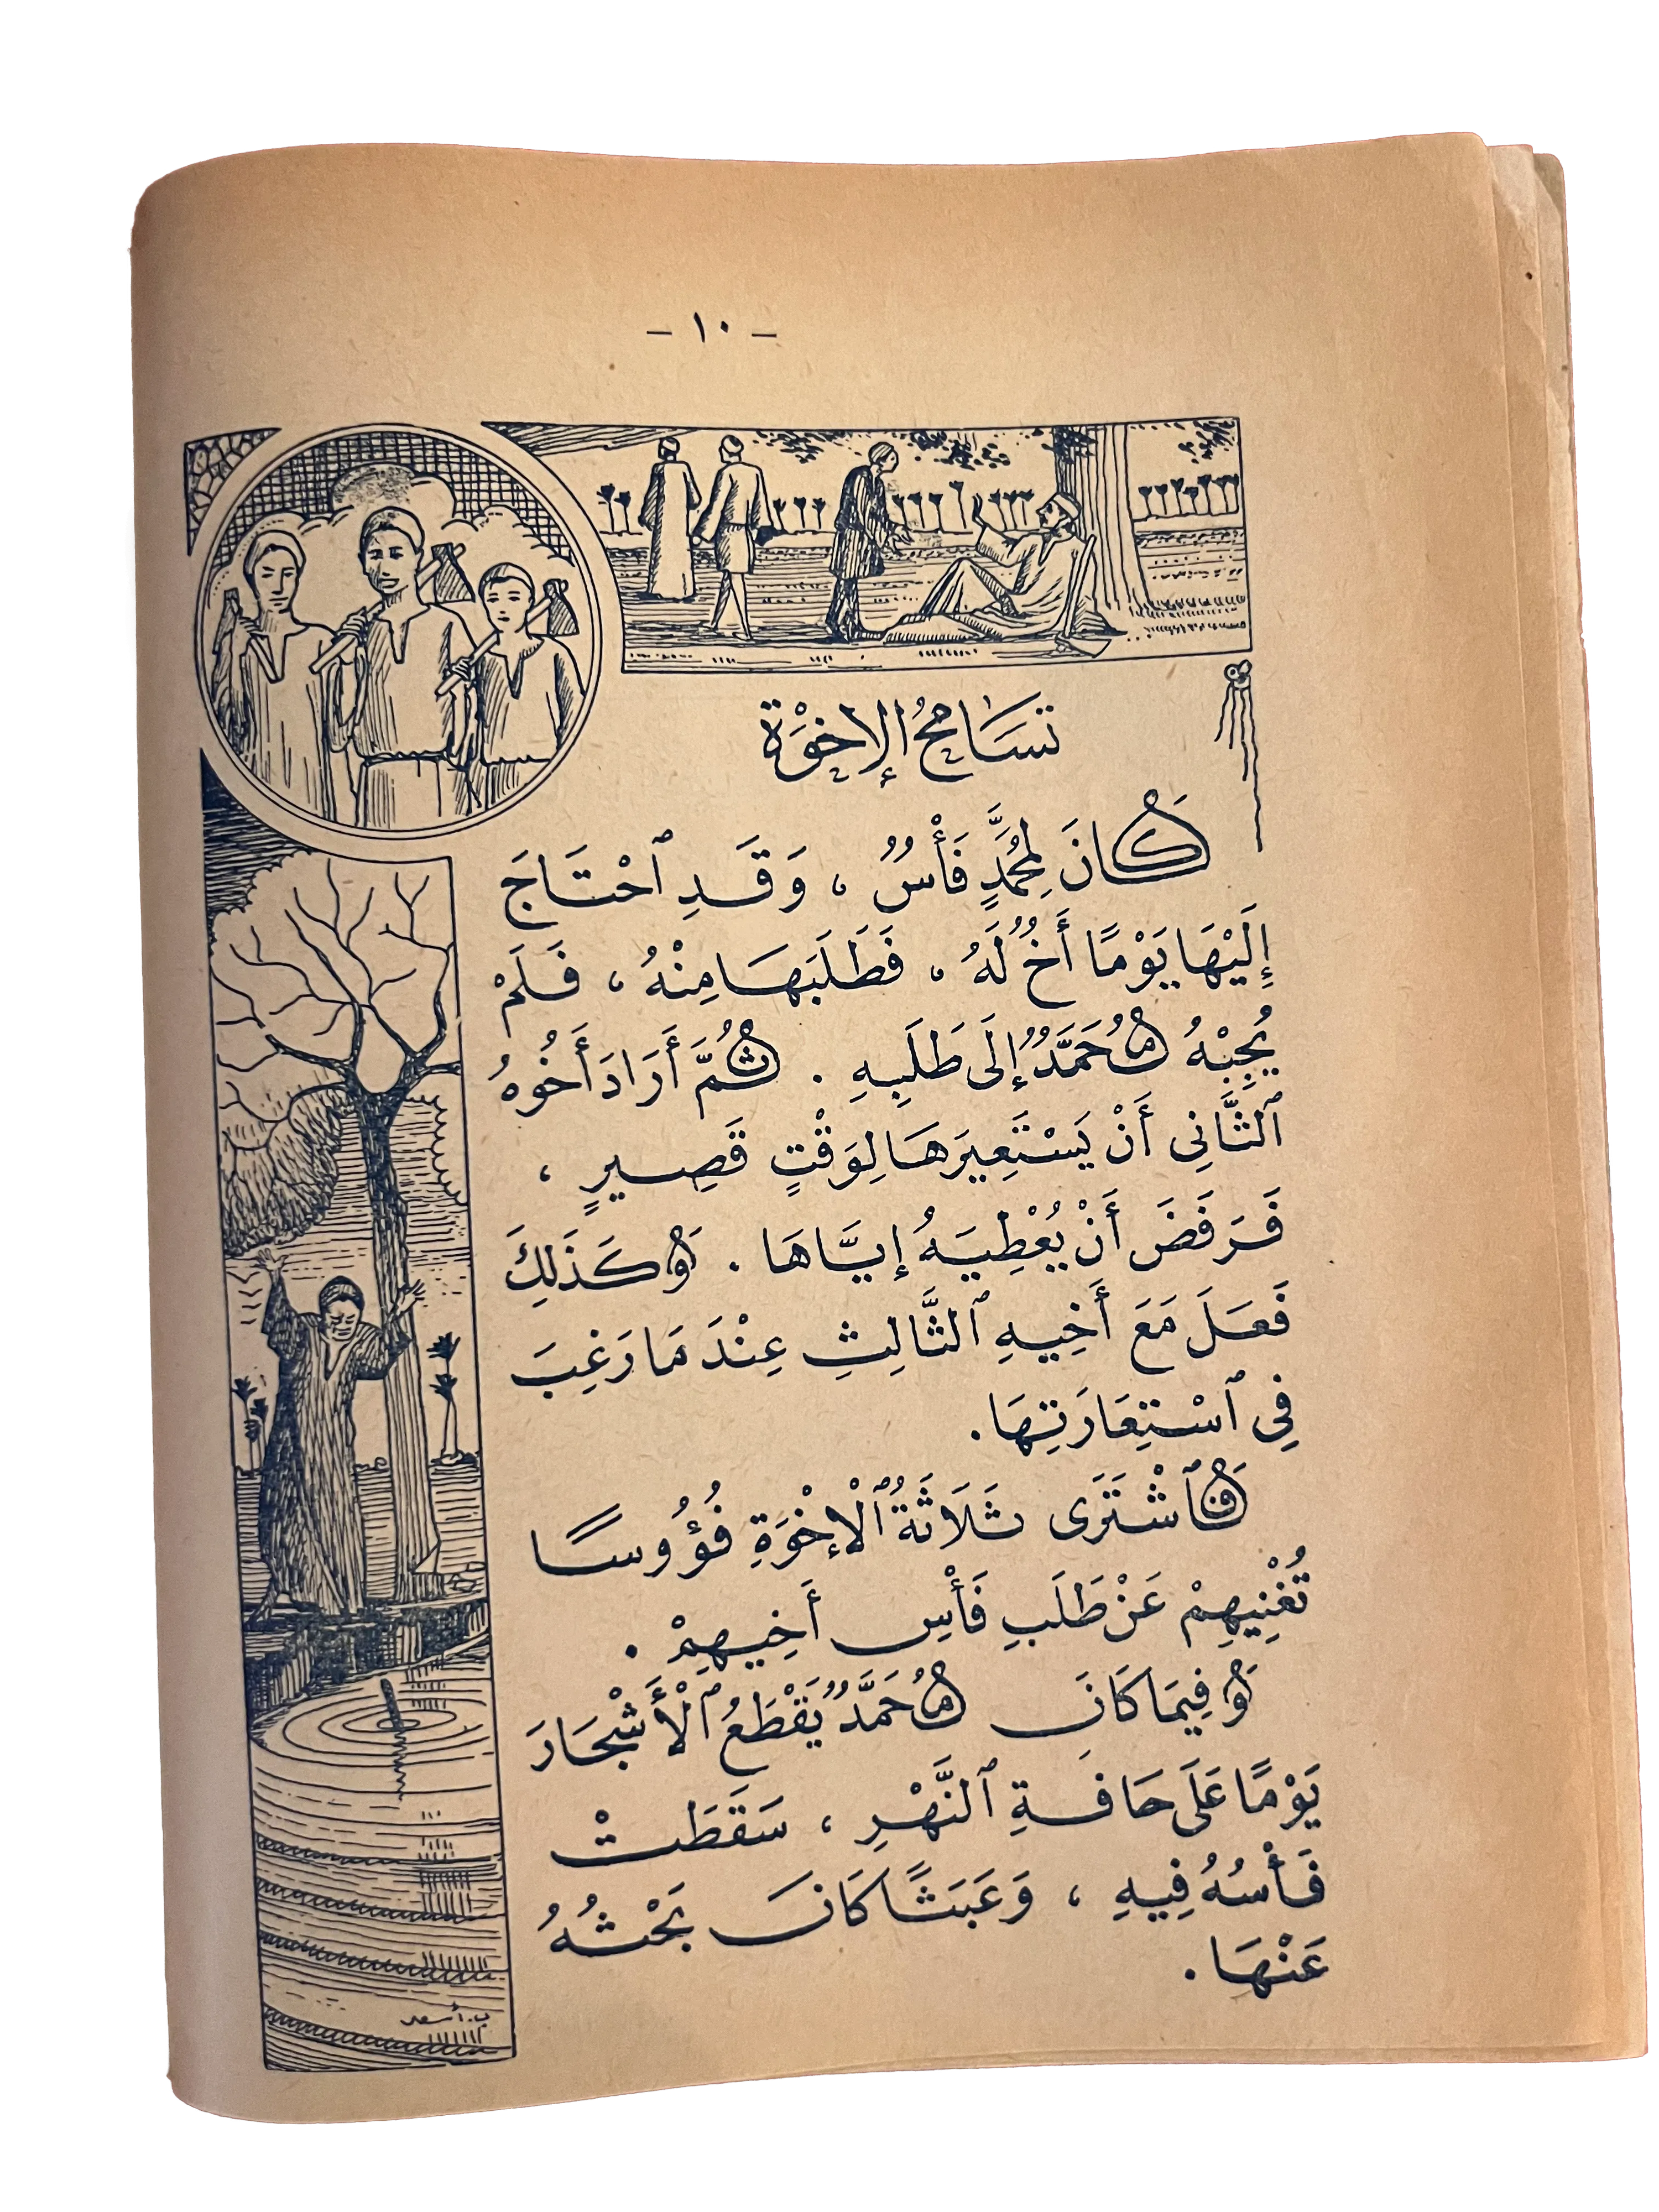 - ١٠ -
تَسَامُحُ الإِخْوَةِ
كَانَ لِمُحَمَّدٍ فَأْسٌ ، وَقَدِ ٱحْتَاجَ
إِلَيْهَا يَوْمًا أَخٌ لَهُ ، فَطَلَبَهَا مِنْهُ ، فَلَمْ
يُجِبْهُ مُحَمَّدٌ إِلَى طَلَبِهِ . ثُمَّ أَرَادَ أَخُوهُ
ٱلثَّانِى أَنْ يَسْتَعِيرَهَا لِوَقْتٍ قَصِيرٍ ،
فَرَفَضَ أَنْ يُعْطِيَهُ إِيَّاهَا . وَكَذَلِكَ
فَعَلَ مَعَ أَخِيهِ ٱلثَّالِثِ عِنْدَ مَا رَغِبَ
فِى ٱسْتِعَارَتِهَا .
فَٱشْتَرَى ثَلَاثَةُ ٱلْإِخْوَةِ فُؤُوسًا
تُغْنِيهِمْ عَنْ طَلَبِ فَأْسِ أَخِيهِمْ .
وَفِيمَا كَانَ مُحَمَّدٌ يَقْطَعُ ٱلْأَشْجَارَ
يَوْمًا عَلَى حَافَةِ ٱلنَّهْرِ ، سَقَطَتْ
فَأْسُهُ فِيهِ ، وَعَبَثًا كَانَ بَحْثُهُ
عَنْهَا .
ب. أسعد